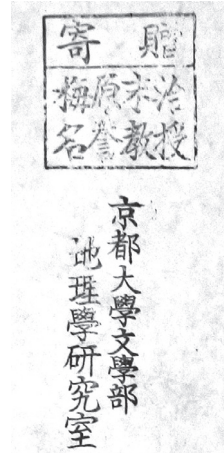 寄贈
梅原末治
名誉教授
京都大學文學部
地理學研究室